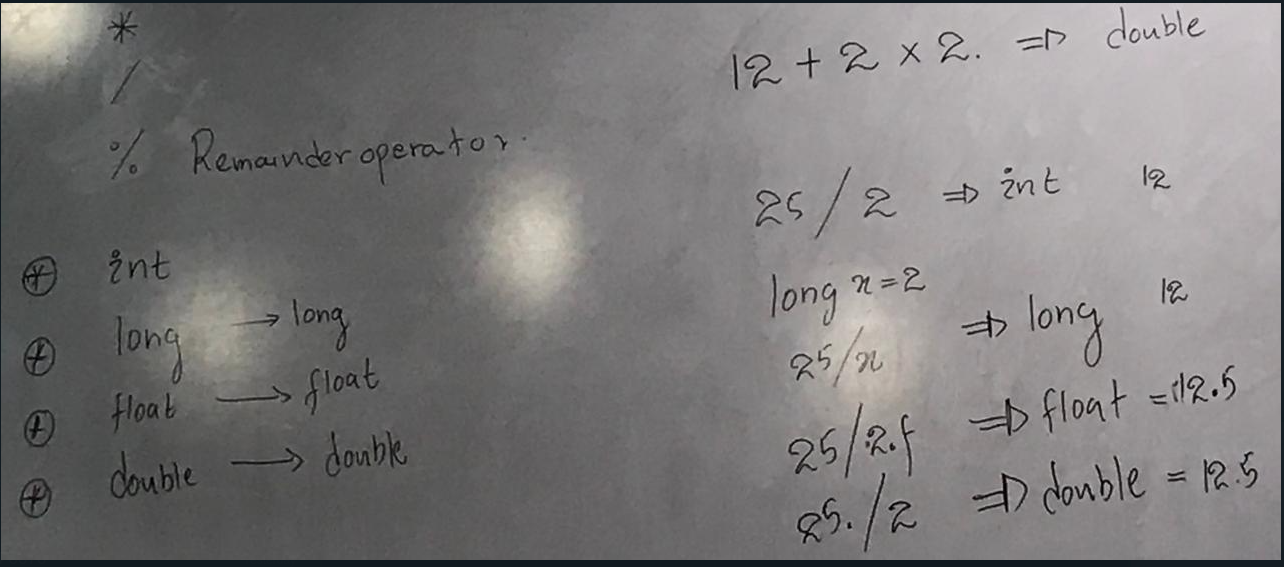 *
/
% Remainder operator.
⊕ int
⊕ long → long
⊕ float → float
⊕ double → double
12 + 2 × 2. ⇒ double
25 / 2 ⇒ int 12
long x=2
25/x ⇒ long 12
25/2.f ⇒ float = 12.5
25./2 ⇒ double = 12.5